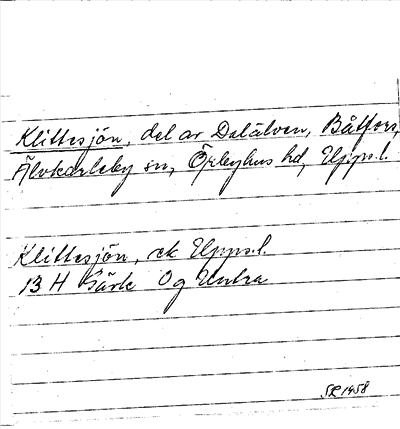 Klittesjön, del av Dalälven, Båtfors,
Älvkarleby sn, Örbyhus hd, Upps.l.
Klittesjön, ek Upps.l.
13 H Särk Og Untra
SR 1458